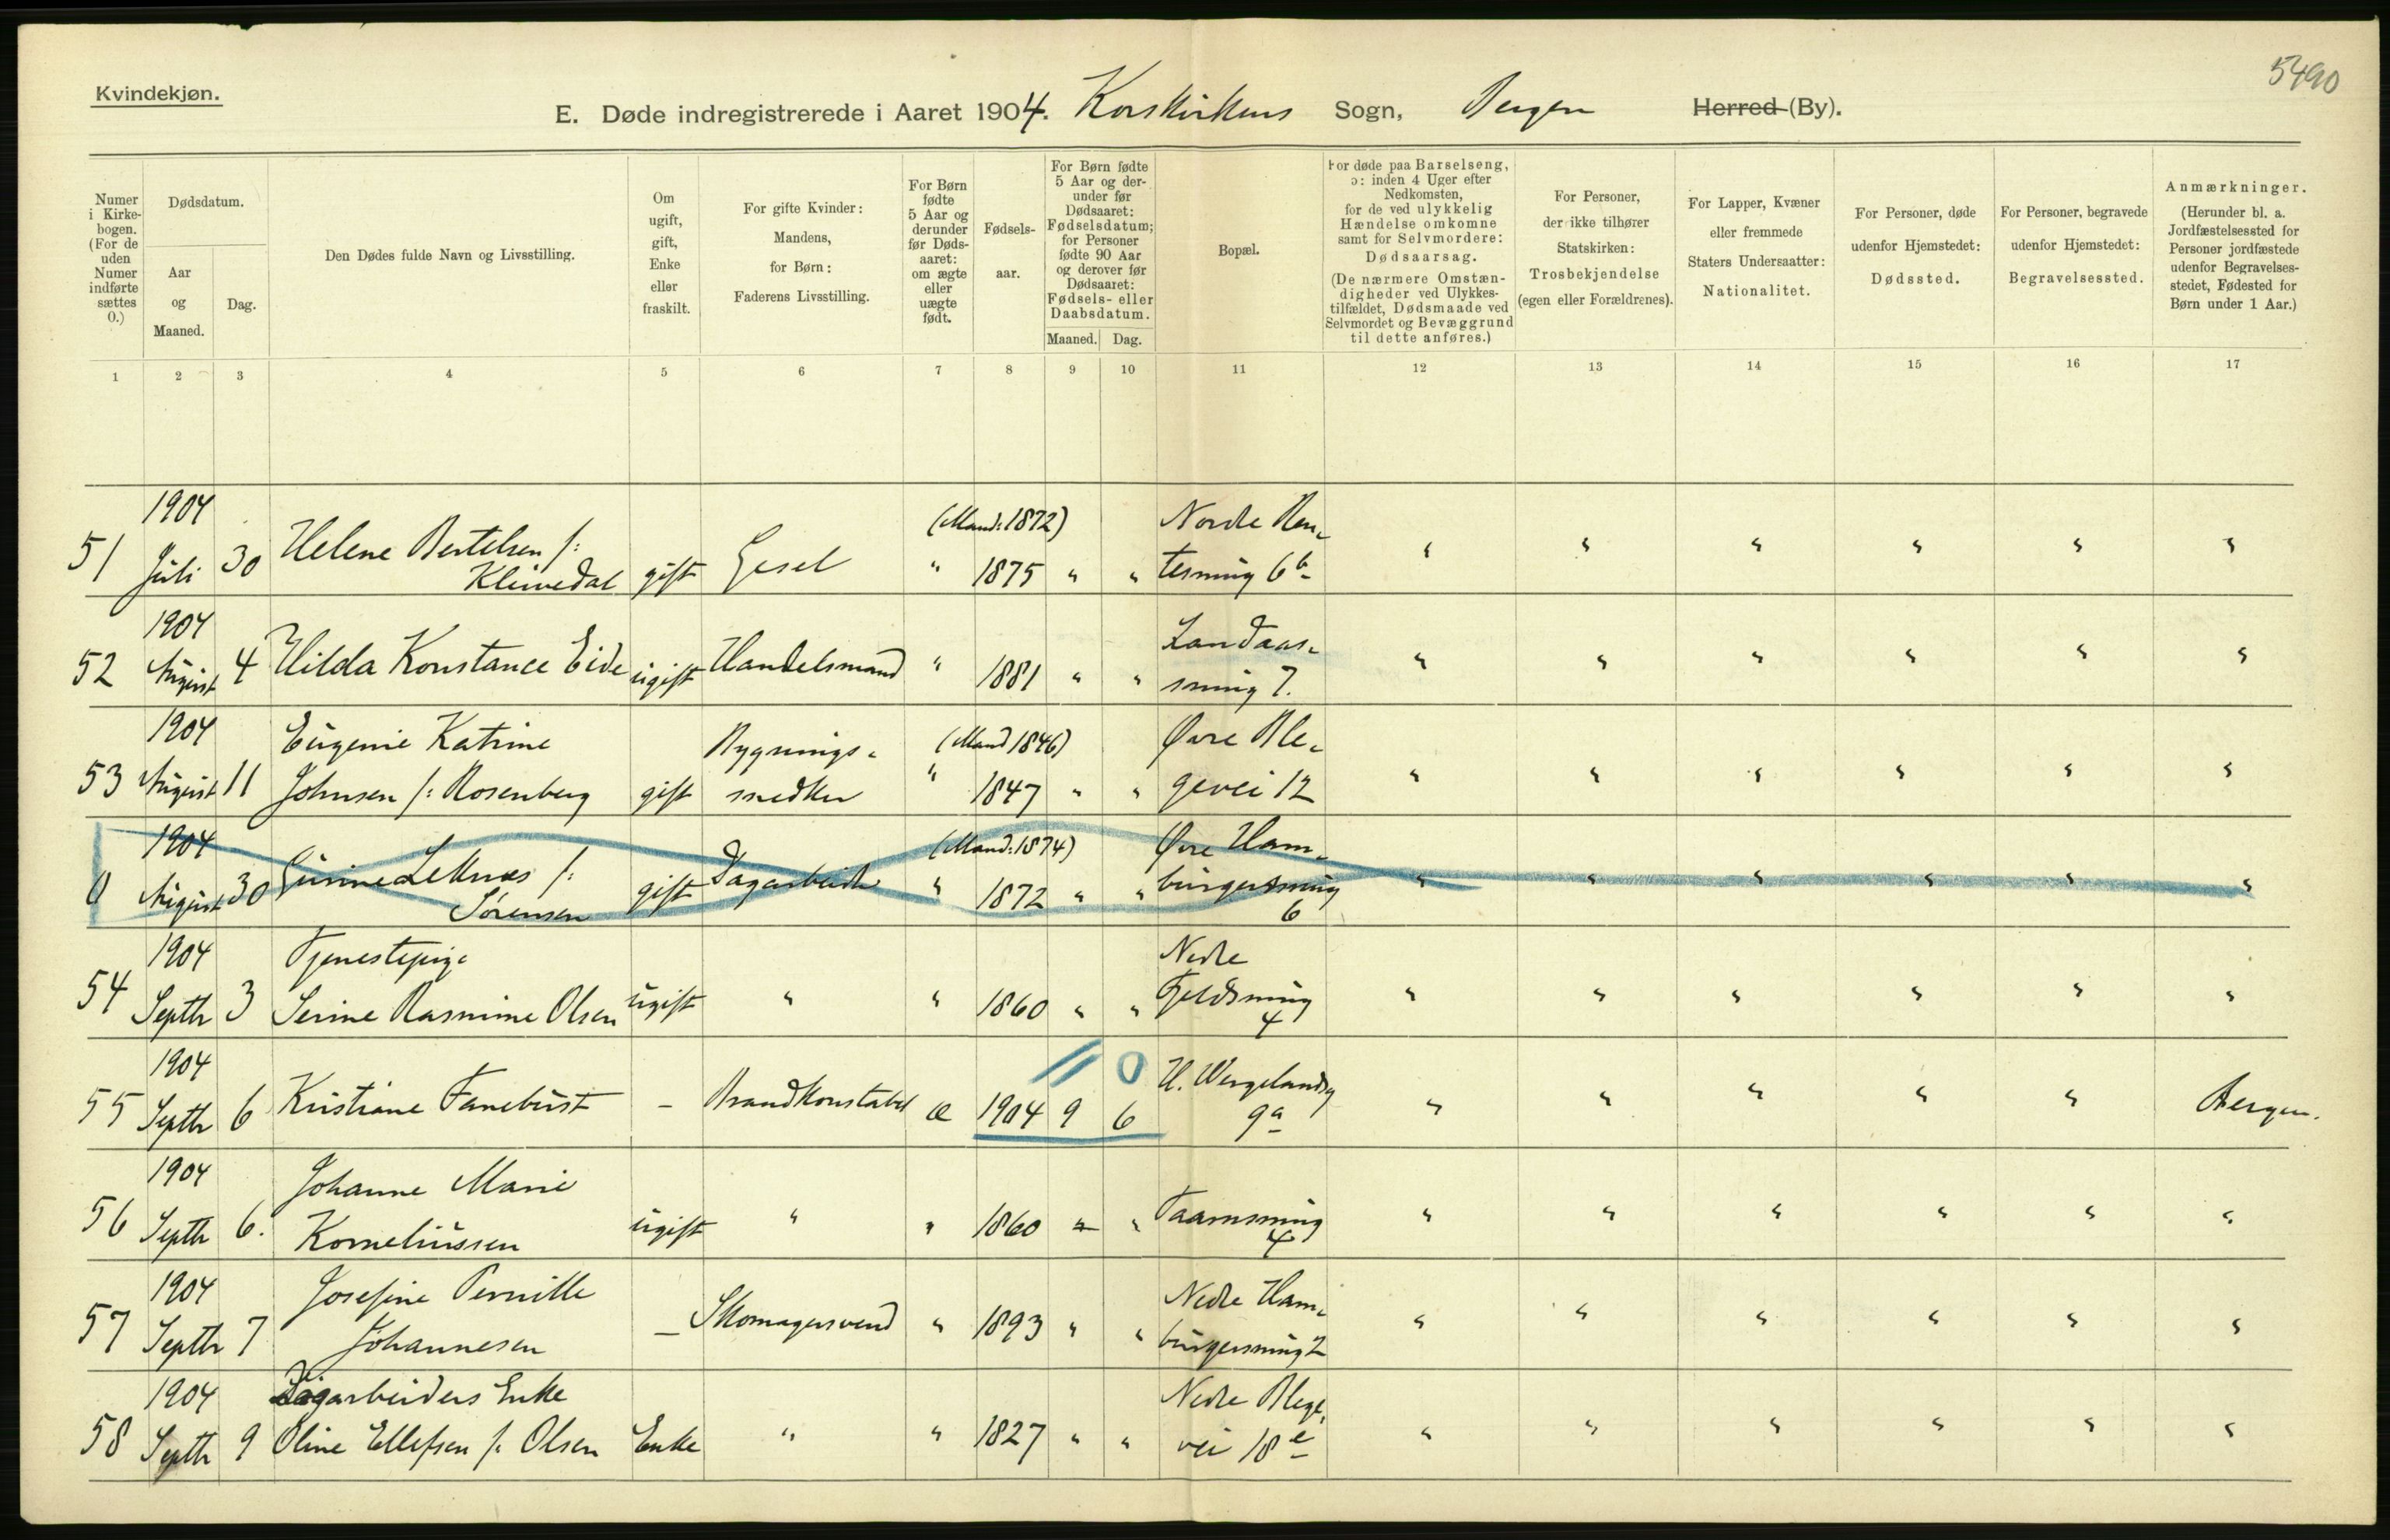 5490
Kvindekjøn.
E. Døde indregistrerede i Aaret 1904. Korskirkens Sogn, Bergen Herred (By).
Numer i Kirke-bogen. (For de uden Numer indførte sættes 0.)
Dødsdatum.
Aar og Maaned.
Dag.
Den Dødes fulde Navn og Livsstilling.
Om ugift, gift, Enke eller fraskilt.
For gifte Kvinder: Mandens, for Børn: Faderens Livsstilling.
For Børn fødte 5 Aar og derunder før Døds-aaret: om ægte eller uægte født.
Fødsels-aar.
For Børn fødte 5 Aar og der-under før Dødsaaret: Fødselsdatum; for Personer fødte 90 Aar og derover før Dødsaaret: Fødsels- eller Daabsdatum.
Maaned. Dag.
Bopæl.
For døde paa Barselseng, ɔ: inden 4 Uger efter Nedkomsten, for de ved ulykkelig Hændelse omkomne samt for Selvmordere: Dødsaarsag. (De nærmere Omstæn-digheder ved Ulykkes-tilfældet, Dødsmaade ved Selvmordet og Bevæggrund til dette anføres.)
For Personer, der ikke tilhører Statskirken: Trosbekjendelse (egen eller Forældrenes).
For Lapper, Kvæner eller fremmede Staters Undersaatter: Nationalitet.
For Personer, døde udenfor Hjemstedet: Dødssted.
For Personer, begravede udenfor Hjemstedet: Begravelsessted.
Anmærkninger. (Herunder bl. a. Jordfæstelsessted for Personer jordfæstede udenfor Begravelses-stedet, Fødested for Børn under 1 Aar.)
1 2 3 4 5 6 7 8 9 10 11 12 13 14 15 16 17
1904 (Mand: 1872) Nordre
51 Juli 30 Helene Bertelsen f: Kleivedal gift Gesel " 1875 " " 6b " " " " " "
1904 Landaas-
52 August 4 Hilda Konstance Eide ugift Handelsmand " 1881 " " smug 7. " " " " " "
1904 Eugenie Katrine Bygnings- (Mand 1846) Øvre Ble-
53 August 11 Johnsen f: Rosenberg gift snedker " 1847 " " gevei 12 " " " " " "
1904 (Mand: 1874) Øvre Ham-
0 August 30 Leknes f: Sørensen gift Dagarbeider " 1872 " " burgersmug 6 " " " " " "
1904 Tjenestepige Nedre
54 Septbr 3 Serine Rasmine Olsen ugift " " 1860 " " Fjeldsmug 4 " " " " " "
1904 0 H. Wergelandsg
55 Septbr 6 Kristiane Fanebust – Brandkonstabel æ 1904 9 6 9a " " " " " Bergen.
1904 Johanne Marie
56 Septbr 6. Korneliussen ugift " " 1860 " " Taarnsmug 4 " " " " " "
1904 Josefine Pernille Nedre Ham-
57 Septbr 7 Johannesen – Skomagersvend " 1893 " " burgersmug 2 " " " " " "
1904 Dagarbeiders Enke Nedre Blege-
58 Septbr 9 Oline Ellefsen f: Olsen Enke " " 1827 " " vei 18e " " " " " "